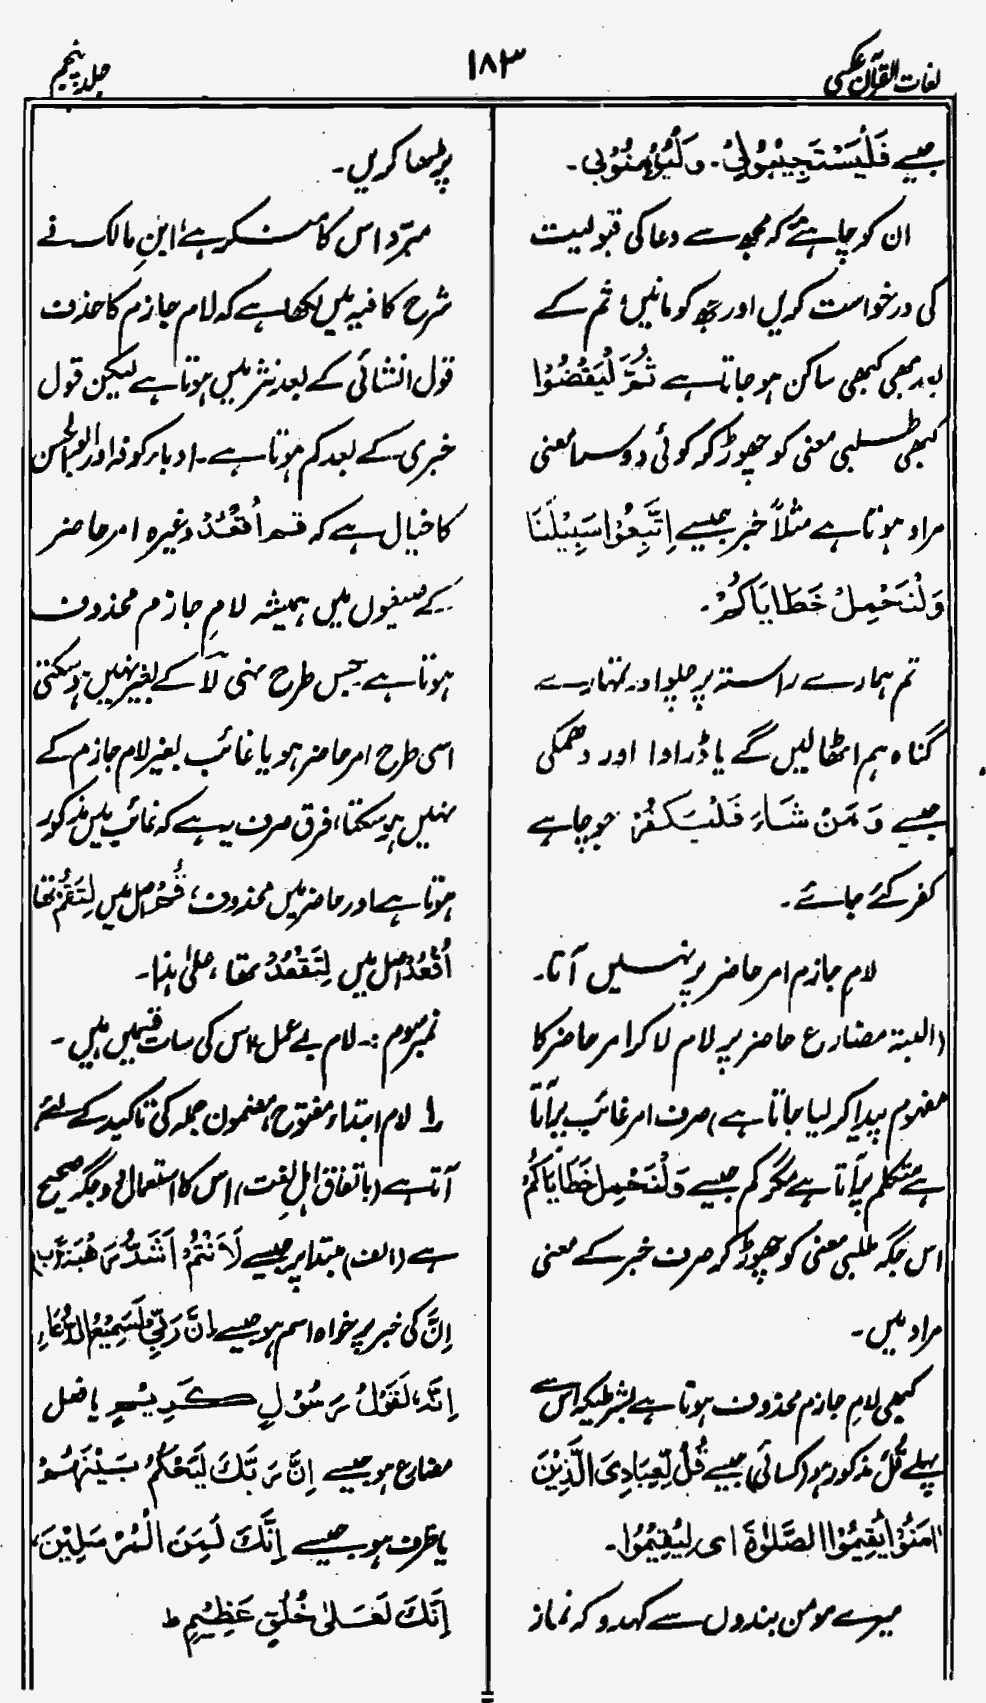 لغات القرآن عکسی
۱۸۳
جلد پنجم
جیسے فَلْیَسْتَجِیْبُوْلِیْ۔ وَلْیُؤْمِنُوْبِی۔
ان کو چاہئے کہ مجھ سے دعا کی قبولیت
کی درخواست کریں اور مجھ کو مانیں؛ ثم کے
بعد بھی کبھی ساکن ہو جاتا ہے ثُمَّ لْیَقْضُوْا
کبھی طلبی معنی کو چھوڑ کر کوئی دوسرا معنی
مراد ہوتا ہے مثلاً خبر جیسے اِتَّبِعُوْا سَبِیْلَنَا
وَلْنَحْمِلْ خَطَایَاکُمْ۔
تم ہمارے راستہ پر چلو اور تمہارے
گناہ ہم اٹھالیں گے یا ڈراوا اور دھمکی
جیسے وَمَنْ شَاءَ فَلْیَکْفُرْ جو چاہے
کفر کئے جائے۔
لامِ جازم امر حاضر پر نہیں آتا۔
(البتہ مضارع حاضر پر لام لا کر امر حاضر کا
مفہوم پیدا کر لیا جاتا ہے) صرف امر غائب پر آتا
ہے متکلم پر آتا ہے مگر کم جیسے وَلْنَحْمِلْ خَطَایَاکُمْ
اس جگہ طلبی معنی کو چھوڑ کر صرف خبر کے معنی
مراد ہیں۔
کبھی لامِ جازم محذوف ہوتا ہے بشرطیکہ اس سے
پہلے قُلْ مذکور ہو (کسائی) جیسے قُلْ لِّعِبَادِیَ الَّذِیْنَ
اٰمَنُوْا یُقِیْمُوْا الصَّلٰوۃَ ای لِیُقِیْمُوْا۔
میرے مومن بندوں سے کہدو کہ نماز
پڑھا کریں۔
مبرّد اس کا منکر ہے؛ ابنِ مالک نے
شرح کافیہ میں لکھا ہے کہ لام جازم کا حذف
قول انشائی کے بعد نثر میں ہوتا ہے لیکن قول
خبری کے بعد کم ہوتا ہے۔ ادباء کوفہ اور ابوالحسن
کا خیال ہے کہ قم اُقْعُدْ وغیرہ امر حاضر
کے صیغوں میں ہمیشہ لامِ جازم محذوف
ہوتا ہے جس طرح نہی لَا کے بغیر نہیں ہوسکتی
اسی طرح امر حاضر ہو یا غائب بغیر لام جازم کے
نہیں ہوسکتا، فرق صرف یہ ہے کہ غائب میں مذکور
ہوتا ہے اور حاضر میں محذوف؛ قُمْ اصل میں لِتَقُمْ تھا
اُقْعُدْ اصل میں لِتَقْعُدْ تھا، علیٰ ہٰذا۔
نمبر سوم :۔ لام بے عمل، اس کی سات قسمیں ہیں۔
۱؎ لام ابتداء مفتوح، مضمون جملہ کی تاکید کے لئے
آتا ہے (باتفاق اہلِ لغت) اس کا استعمال دو جگہ صحیح
ہے (الف) مبتدا پر جیسے لَاَنْتُمْ اَشَدُّ رَهْبَةً (ب)
اِنَّ کی خبر پر خواہ اسم ہو جیسے اِنَّ رَبِّیْ لَسَمِیْعُ الدُّعَاءِ
اِنَّهٗ لَقَوْلُ رَسُوْلٍ کَرِیْمٍ یا فعل
مضارع ہو جیسے اِنَّ رَبَّكَ لَیَحْکُمُ بَیْنَهُمْ
یا ظرف ہو جیسے اِنَّكَ لَمِنَ الْمُرْسَلِیْنَ،
اِنَّكَ لَعَلٰی خُلُقٍ عَظِیْمٍ ط